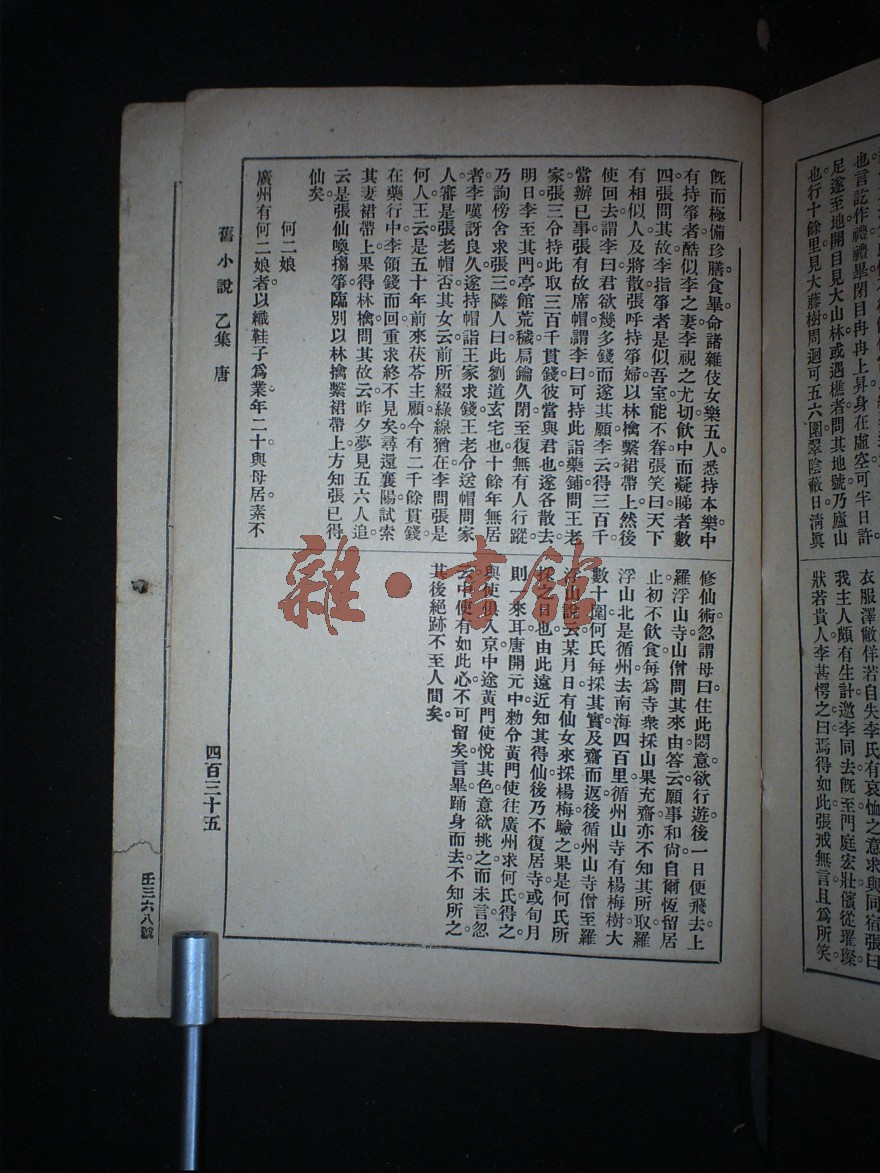 也言訖作禮禮畢閉目冉冉上昇身在虛空可半日許
足遂至地開目見大山林或遇樵者問其地號乃廬山
也行十餘里見大藤樹周迴可五六圍翠陰蔽日淸眞
衣服澤敝佯若自失李氏有哀恤之意求與同宿張曰
我主人頗有生計邀李同去旣至門庭宏壯儐從璀璨
狀若貴人李甚愕之曰焉得如此張戒無言且爲所笑
旣而極備珍膳食畢命諸雜伎女樂五人悉持本樂中
有持箏者酷似李之妻李視之尤切飮中而凝睇者數
四張問其故李指箏者是似吾室能不眷張笑曰天下
有相似人及將散張呼持箏婦以林檎繫裙帶上然後
使回去謂李曰君欲幾多錢而遂其願李云得三百千
當辦已事張有故席帽謂李曰可持此詣藥鋪問王老
家張三令持此取三百千貫錢彼當與君也遂各散去
明日李至其門亭館荒穢扃鑰久閉至復無有人行蹤
乃詢傍舍求張三隣人曰此劉道玄宅也十餘年無居
者李嘆訝良久遂持帽詣王家求錢王老令送帽問家
人審是張老帽否其女云前所綴綠線猶在李問張是
何人王云是五十年前來茯苓主顧今有二千餘貫錢
在藥行中李領錢而回重求終不見矣尋還襄陽試索
其妻裙帶上果得林檎問其故云昨夕夢見五六人追
云是張仙喚搊箏臨別以林檎繫裙帶上方知張已得
仙矣。
何二娘
廣州有何二娘者以織鞋子爲業年二十與母居素不
修仙術忽謂母曰住此悶意欲行遊後一日便飛去上
羅浮山寺山僧問其來由答云願事和尙自爾恆留居
止初不飮食每爲寺衆採山果充齋亦不知其所取羅
浮山北是循州去南海四百里循州山寺有楊梅樹大
數十圍何氏每採其實及齋而返後循州山寺僧至羅
浮山說云某月日有仙女來採楊梅驗之果是何氏所
採之日也由此遠近知其得仙後乃不復居寺或旬月
則一來耳唐開元中勅令黃門使往廣州求何氏得之
與使俱入京中途黃門使悅其色意欲挑之而未言忽
云中使有如此心不可留矣言畢踊身而去不知所之
其後絕跡不至人間矣。
舊小說 乙集 唐
四百三十五
壬三六八號
雜·書館